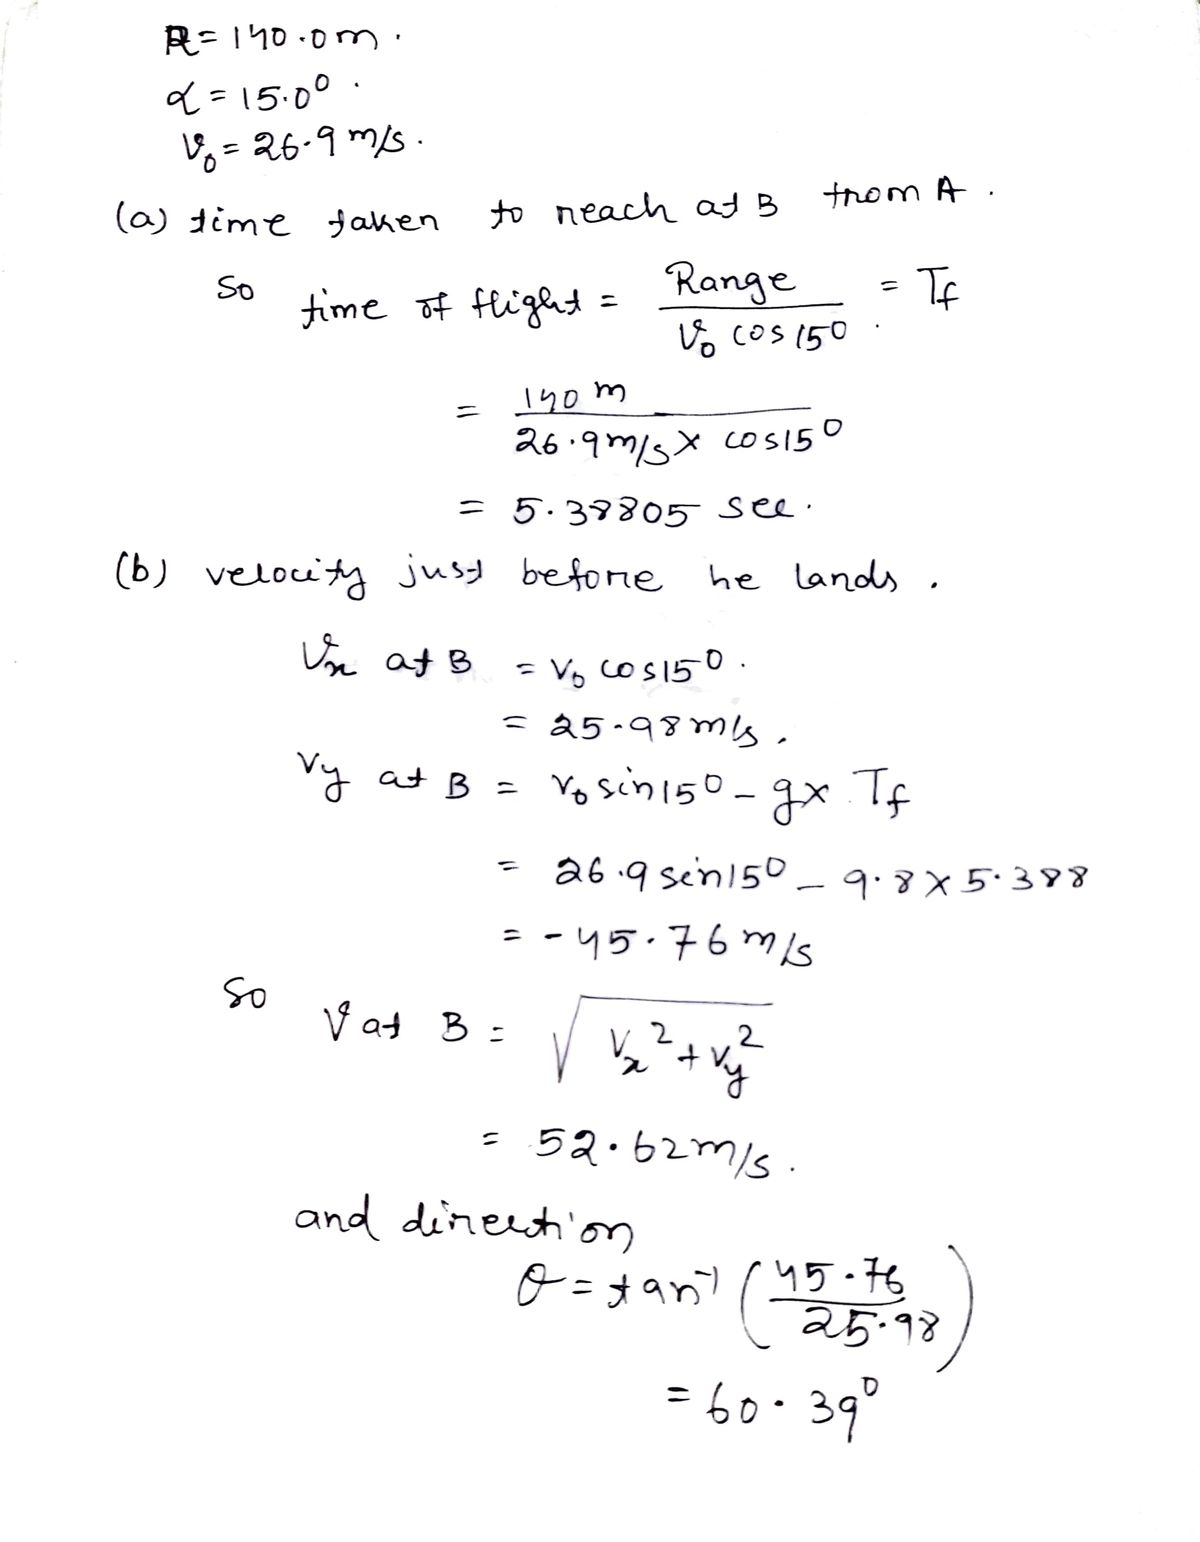 R = 140.0 m.
α = 15.0°.
V₀ = 26.9 m/s.
(a) time taken to reach at B from A.
So time of flight = Range / V₀ cos 15° = T_f
= 140 m / 26.9 m/s × cos 15°
= 5.38805 sec.
(b) velocity just before he lands.
Vₓ at B = V₀ cos 15°.
= 25.98 m/s.
Vy at B = V₀ sin 15° - g × T_f
= 26.9 sin 15° - 9.8 × 5.388
= - 45.76 m/s
So V at B = √(Vₓ² + Vy²)
= 52.62 m/s.
and direction
θ = tan⁻¹ (45.76 / 25.98)
= 60.39°